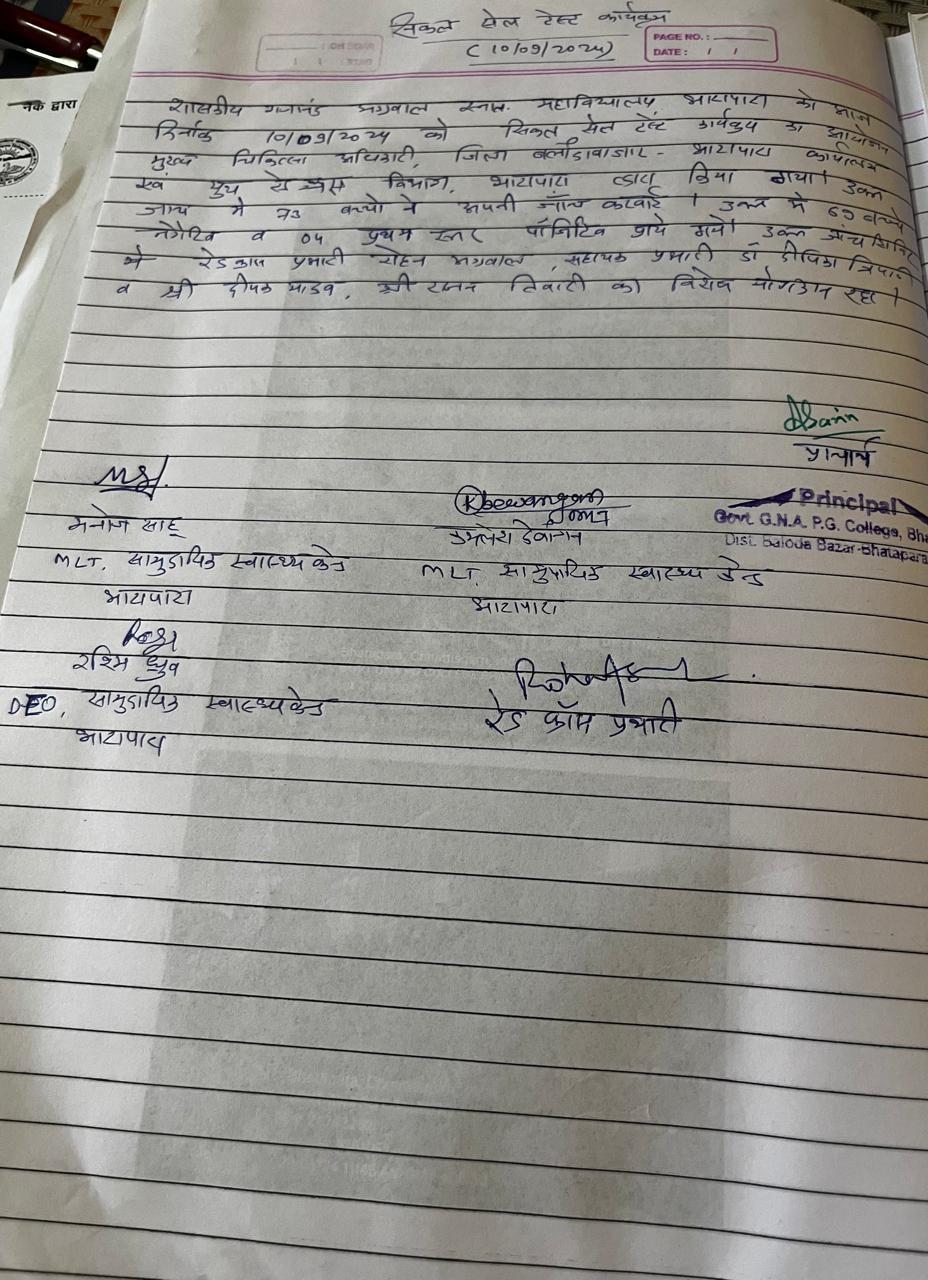 सिकल सेल टेस्ट कार्यक्रम
(10/09/2024)
PAGE NO.:
DATE: / /
नके द्वारा
शासकीय गजानंद अग्रवाल स्नात. महाविद्यालय भाटापारा को आज
दिनांक 10/09/2024 को सिकल सेल टेस्ट कार्यक्रम का आयोजन
मुख्य चिकित्सा अधिकारी, जिला बलौदाबाजार - भाटापारा कार्यालय
एवं यूथ रेडक्रॉस विभाग, भाटापारा द्वारा किया गया। उक्त
जांच में 73 बच्चो ने अपनी जाँच करवाई। उक्त में 69 बच्चे
नेगेटिव व 04 प्रथम स्तर पॉजिटिव पाये गये। उक्त जांच शिविर
में रेडक्रास प्रभारी रोहन अग्रवाल, सहायक प्रभारी डॉ दीपिका त्रिपाठी
व श्री दीपक यादव, श्री रतन तिवारी का विशेष योगदान रहा।
प्राचार्य
Principal
Govt. G.N.A. P.G. College, Bha
Dist. Baloda Bazar-Bhatapara
मनोज साहू
MLT. सामुदायिक स्वास्थ्य केन्द्र
भाटापारा
Kbewangan
देवांगन
MLT. सामुदायिक स्वास्थ्य केन्द्र
भाटापारा
रश्मि ध्रुव
DEO, सामुदायिक स्वास्थ्य केन्द्र
भाटापारा
रेड क्रॉस प्रभारी